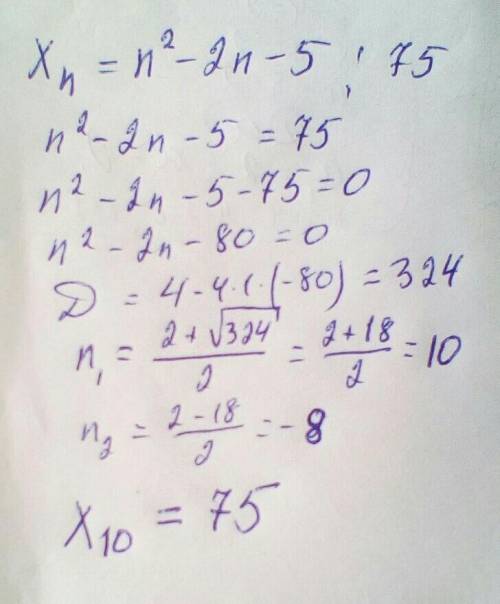 Xₙ = n² - 2n - 5 ; 75
n² - 2n - 5 = 75
n² - 2n - 5 - 75 = 0
n² - 2n - 80 = 0
D = 4 - 4·1·(-80) = 324
n₁ = (2 + √324)/2 = (2 + 18)/2 = 10
n₂ = (2 - 18)/2 = -8
X₁₀ = 75